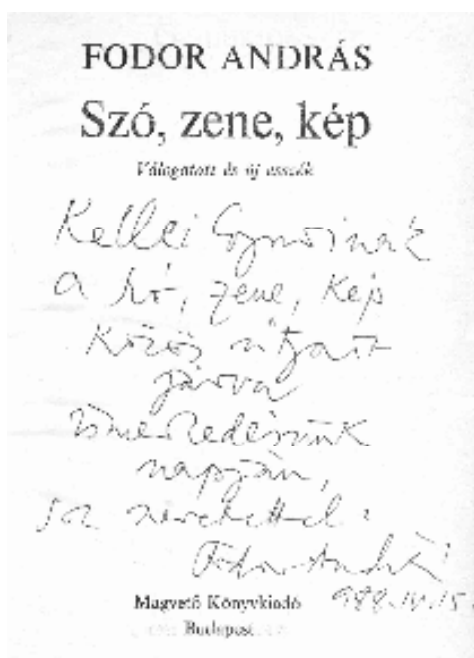 FODOR ANDRÁS
Szó, zene, kép
Válogatott és új esszék
Kellei Györinek
a szó, zene, kép
közös útjait
járva
ismerkedésünk
napján,
szeretettel:
Fodor András
988. IV. 15.
Magvető Könyvkiadó
Budapest